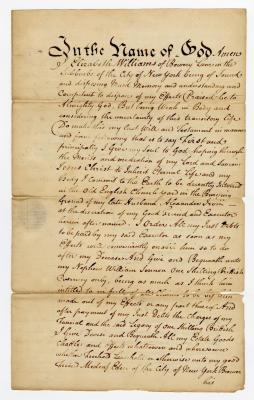 In the Name of God Amen
I Elizabeth Williams of Bowery Lane in the
Suburbs of the City of New York being of Sound
and disposing Mind Memory and understanding and
Competent to dispose of my Effects Praised be to
Almighty God. But being Weak in Body and
considering the uncertainty of this transitory Life
Do make this my last Will and Testament in manner
and form following that is to say First and
principally I Give my Soul to God hoping through
the Merits and mediation of my Lord and Saviour
Jesus Christ to Inherit Eternal Life and my
Body I Commit to the Earth to be decently Interred
in the Old English Church Yard in the Burying
Ground of my late Husband Alexander
at the discretion of my Good Friend and Executor
herein after named. I Order all my Just Debts
to be paid by my said Executor as soon as my
Effects will conveniently enable him so to do
after my Decease And Give and Bequeath unto
my Nephew William One Shilling British
Currency only, being as much as I think him
intitled to or
made out of my Effects in any
after payment of my Just Debts the Charges of my
Funeral and the said Legacy of one Shilling British
I Give Devise and Bequeath All my Estate Goods
Chattles and effects whatsoever and wheresoever
whether or otherwise unto my good
Friend of the City of New York
his